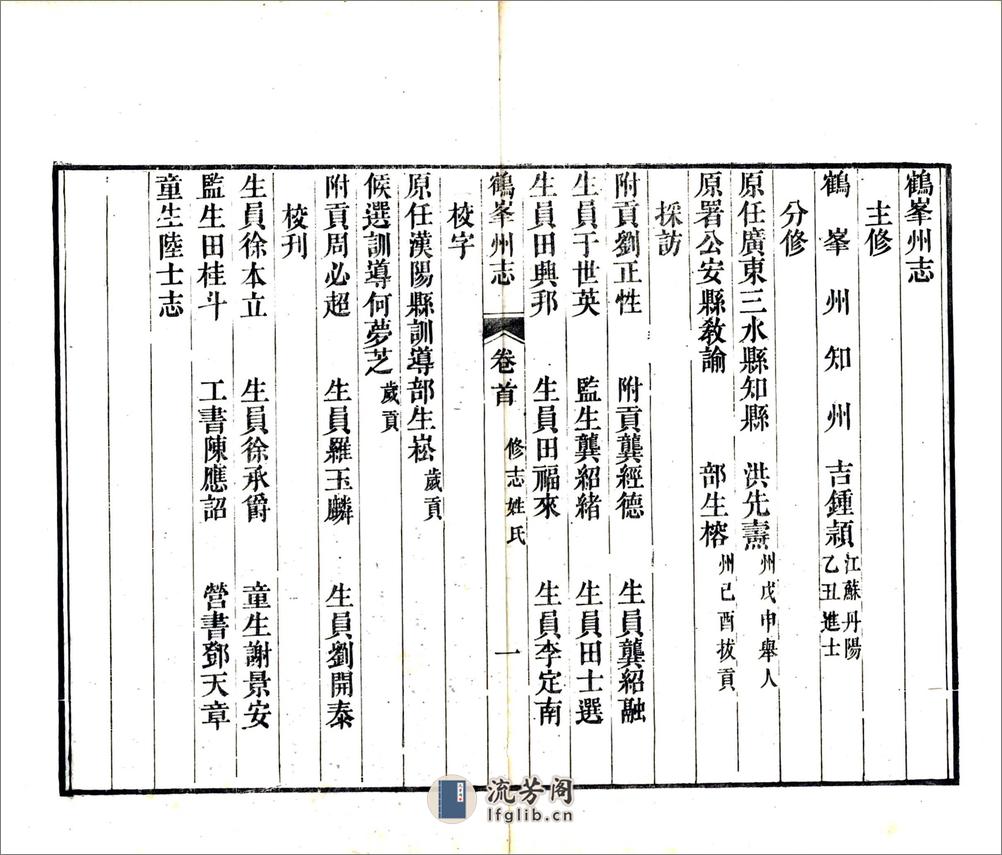 鶴峯州志
主修
鶴峯州知州 吉鍾頴 江蘇丹陽乙丑進士
分修
原任廣東三水縣知縣 洪先燾 州戊申舉人
原署公安縣教諭 部生榕 州己酉拔貢
採訪
附貢劉正性 附貢龔經德 生員龔紹融
生員于世英 監生龔紹緒 生員田士選
生員田興邦 生員田福來 生員李定南
鶴峯州志 卷首 修志姓氏 一
校字
原任漢陽縣訓導部生崧 歲貢
候選訓導何夢芝 歲貢
附貢周必超 生員羅玉麟 生員劉開泰
校刊
生員徐本立 生員徐承爵 童生謝景安
監生田桂斗 工書陳應詔 營書鄧天章
童生陸士志
流芳阁
lfglib.cn